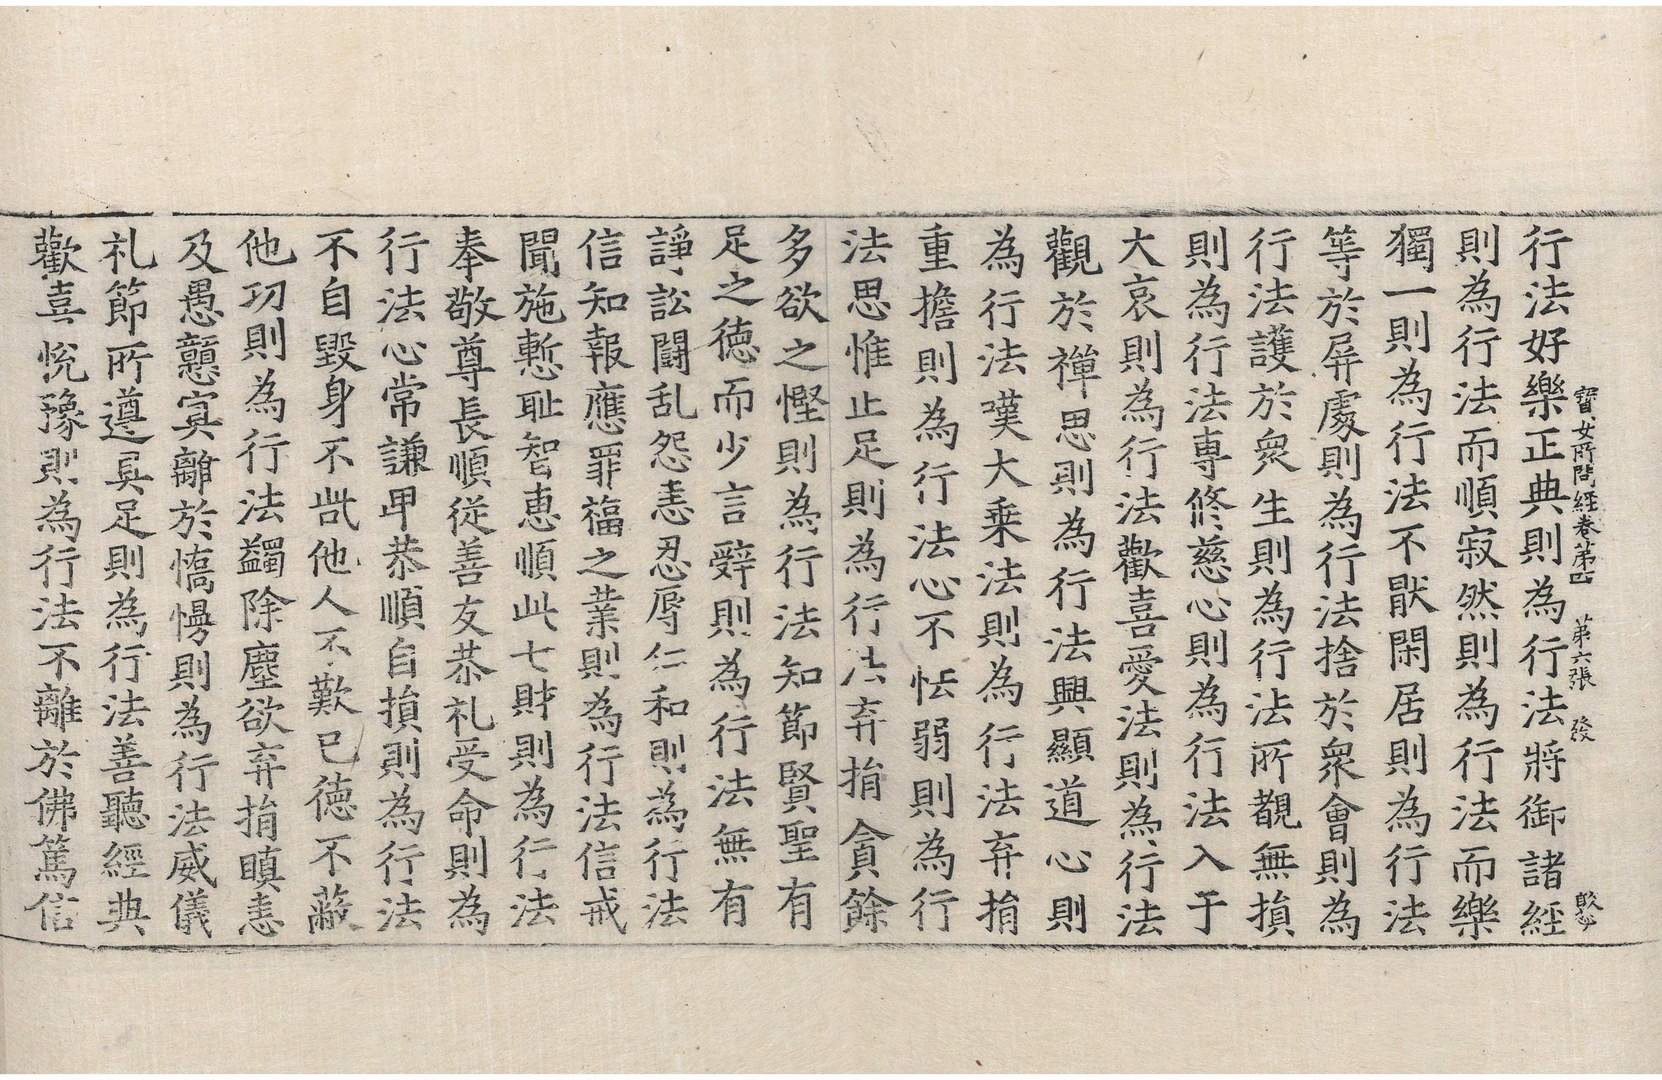 寶女所問經卷第四 第六張 發
行法好樂正典則為行法將御諸經
則為行法而順寂然則為行法而樂
獨一則為行法不猒閑居則為行法
等於屏處則為行法捨於衆會則為
行法護於衆生則為行法所覩無損
則為行法專修慈心則為行法入于
大哀則為行法歡喜愛法則為行法
觀於禪思則為行法興顯道心則
為行法嘆大乘法則為行法弃捐
重擔則為行法心不怯弱則為行
法思惟止足則為行法弃捐貪餘
多欲之慳則為行法知節賢聖有
足之德而少言辭則為行法無有
諍訟鬪乱怨恚忍辱仁和則為行法
信知報應罪福之業則為行法信戒
聞施慙恥智惠順此七財則為行法
奉敬尊長順從善友恭礼受命則為
行法心常謙卑恭順自損則為行法
不自毀身不呰他人不歎已德不蔽
他功則為行法蠲除塵欲弃捐瞋恚
及愚戇冥離於憍慢則為行法威儀
礼節所遵具足則為行法善聽經典
歡喜悅豫則為行法不離於佛篤信